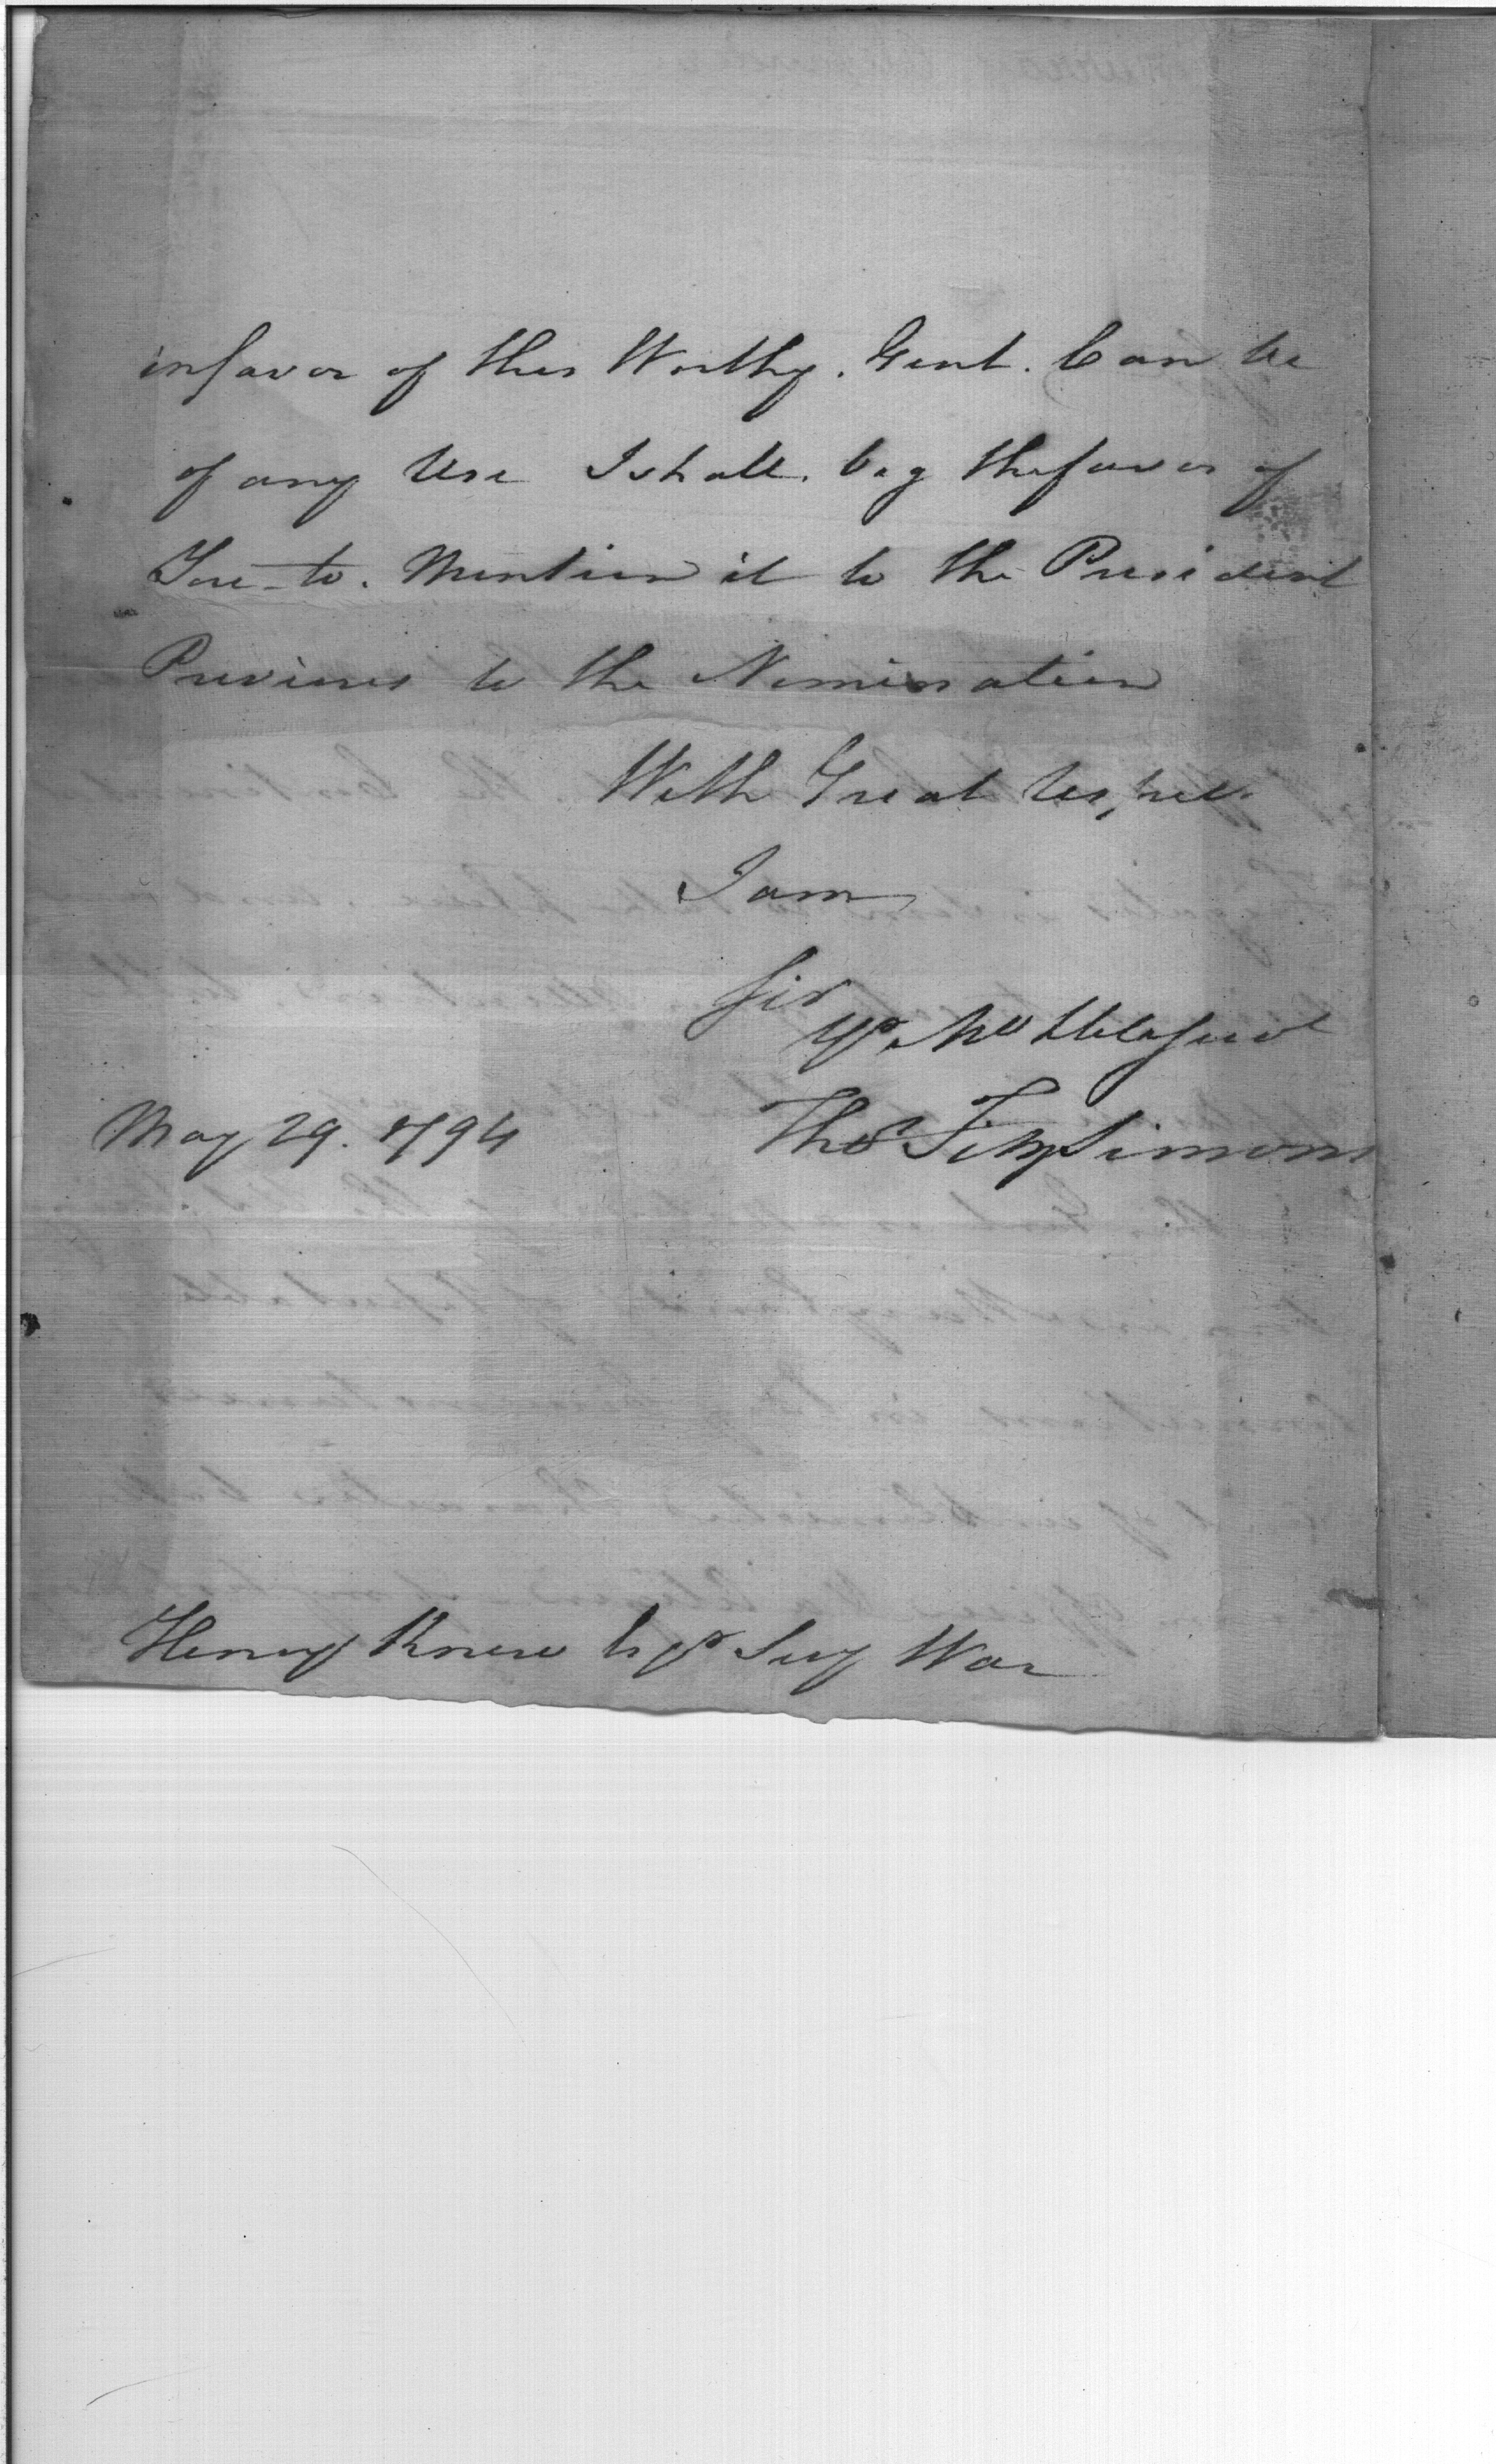 in favor of this Worthy. Gent. Can be
of any Use I shall. beg the favor of
You to. Mention it to the President
Previous to the Nomination
With Great Respect
I am
Sir
Yr Mo
Thos FitzSimons
May 29. 1794
Henry Knox Esqr Secy War